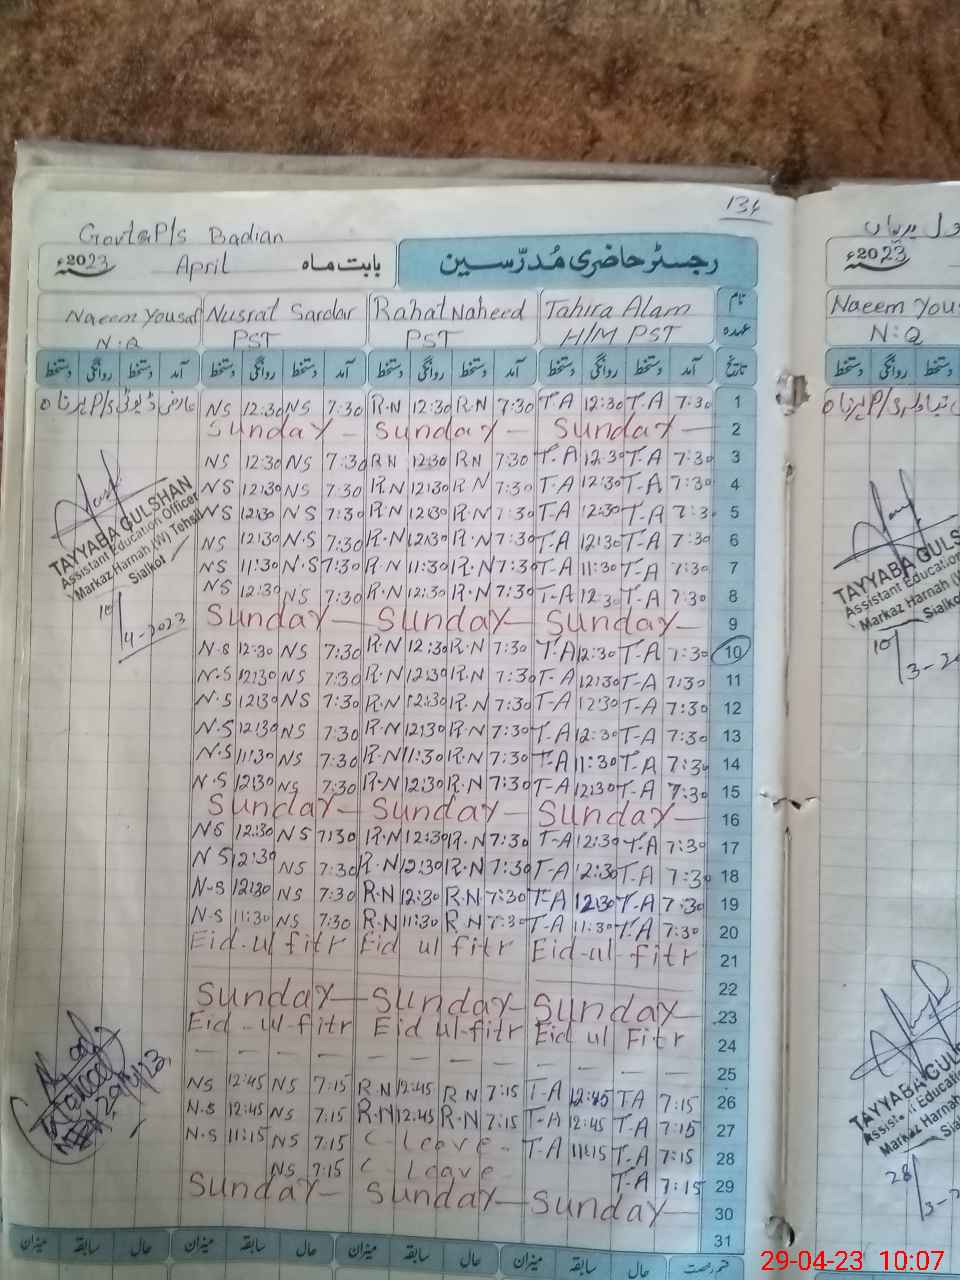 134
Govt G P/s Badian
رجسٹر حاضری مُدرّسین
بابت ماہ April 2023ء
نام Tahira Alam Rahat Naheed Nusrat Sardar Naeem Yousaf
عہدہ H/M PST PST PST N:Q
تاریخ آمد دستخط روانگی دستخط آمد دستخط روانگی دستخط آمد دستخط روانگی دستخط آمد دستخط روانگی دستخط
NS 12:30 NS 7:30 R.N 12:30 R.N 7:30 T-A 12:30 T-A 7:30 1
Sunday - Sunday - Sunday - 2
NS 12:30 NS 7:30 R.N 12:30 R.N 7:30 T-A 12:30 T-A 7:30 3
NS 12:30 NS 7:30 R.N 12:30 R.N 7:30 T-A 12:30 T-A 7:30 4
NS 12:30 NS 7:30 R.N 12:30 R.N 7:30 T-A 12:30 T-A 7:30 5
NS 12:30 N.S 7:30 R.N 12:30 R.N 7:30 T-A 12:30 T-A 7:30 6
NS 11:30 N.S 7:30 R.N 11:30 R.N 7:30 T-A 11:30 T-A 7:30 7
NS 12:30 NS 7:30 R.N 12:30 R.N 7:30 T-A 12:30 T-A 7:30 8
Sunday - Sunday - Sunday - 9
N.S 12:30 NS 7:30 R.N 12:30 R.N 7:30 T-A 12:30 T-A 7:30 10
N.S 12:30 NS 7:30 R.N 12:30 R.N 7:30 T-A 12:30 T-A 7:30 11
N.S 12:30 NS 7:30 R.N 12:30 R.N 7:30 T-A 12:30 T-A 7:30 12
N.S 12:30 NS 7:30 R.N 12:30 R.N 7:30 T-A 12:30 T-A 7:30 13
N.S 11:30 NS 7:30 R.N 11:30 R.N 7:30 T-A 11:30 T-A 7:30 14
N.S 12:30 NS 7:30 R.N 12:30 R.N 7:30 T-A 12:30 T-A 7:30 15
Sunday - Sunday - Sunday - 16
NS 12:30 NS 7:30 R.N 12:30 R.N 7:30 T-A 12:30 T-A 7:30 17
NS 12:30 NS 7:30 R.N 12:30 R.N 7:30 T-A 12:30 T-A 7:30 18
N-S 12:30 NS 7:30 R.N 12:30 R.N 7:30 T-A 12:30 T-A 7:30 19
N-S 11:30 NS 7:30 R.N 11:30 R.N 7:30 T-A 11:30 T-A 7:30 20
Eid-ul fitr Eid ul fitr Eid-ul-fitr 21
22
Sunday - Sunday - Sunday - 23
Eid-ul-fitr Eid ul-fitr Eid ul Fitr 24
25
NS 12:45 NS 7:15 R.N 12:45 R.N 7:15 T-A 12:45 TA 7:15 26
N.S 12:45 NS 7:15 R.N 12:45 R.N 7:15 T-A 12:45 T-A 7:15 27
N.S 11:15 NS 7:15 C-Leave - T-A 11:15 T-A 7:15 28
NS 7:15 C-Leave T-A 7:15 29
Sunday - Sunday - Sunday - 30
31
میزان سابقہ حال میزان سابقہ حال میزان سابقہ حال میزان سابقہ حال قسم رخصت
TAYYABA GULSHAN
Assistant Education Officer
Markaz Harnah (W) Tehsil
Sialkot
10/4-2023
2023ء
Naeem Yous
N:Q
دستخط روانگی دستخط
TAYYABA GULS
Assistant Education
Markaz Harnah (
Sialko
10/3-20
TAYYABA GUL
Assistant Educa
Markaz Harnah
Sial
28/3-2
29-04-23 10:07